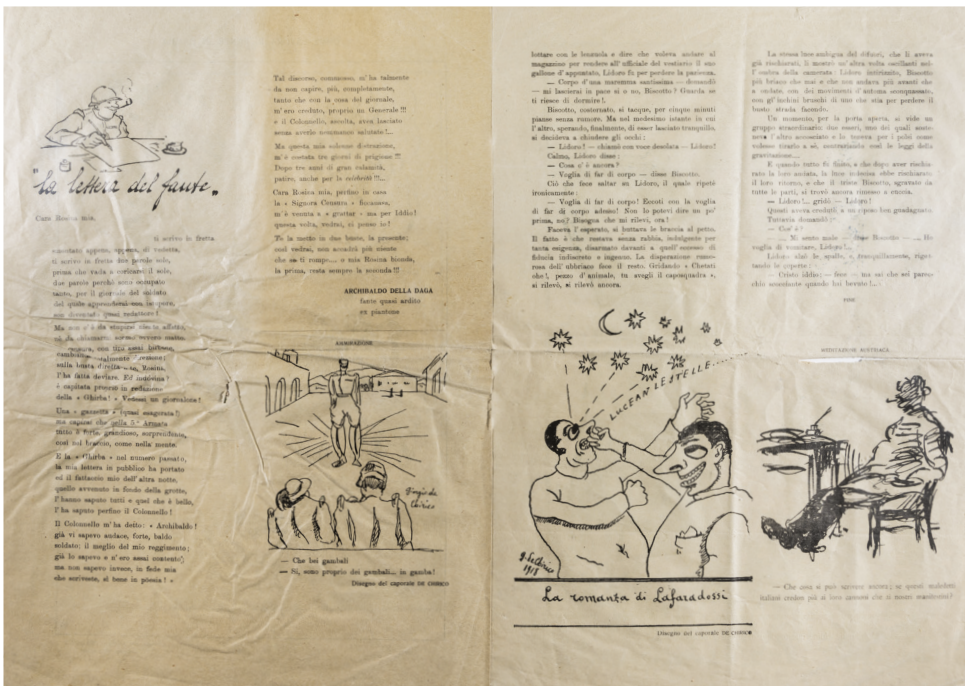 "la lettera del fante"
Cara Rosina mia,
ti scrivo in fretta
ti scrivo in fretta due parole sole,
prima che vada a coricarsi il sole,
due parole perchè sono occupato
tanto, per il giornale del soldato
del quale apprenderai con stupore,
son diventato quasi redattore!
sulla busta
l'ha fatta deviare. Ed indovina?
è capitata proprio in redazione
della « Ghirba! » Vedessi un giornalone!
Una « gazzetta » (quasi esagerata!)
ma capirai che nella 5.ª Armata
tutto è forte, grandioso, sorprendente,
così nel braccio, come nella mente.
E la « Ghirba » nel numero passato,
la mia lettera in pubblico ha portato
ed il fattaccio mio dell'altra notte,
quello avvenuto in fondo della grotta,
l'hanno saputo tutti e quel che è bello,
l'ha saputo perfino il Colonnello!
Il Colonnello m'ha detto: « Archibaldo!
già vi sapevo audace, forte, baldo
soldato; il meglio del mio reggimento;
già lo sapevo e n'ero assai contento;
ma non sapevo invece, in fede mia
che scriveste, sì bene in poesia! »
Tal discorso, commosso, m'ha talmente
da non capire, più, completamente,
tanto che con la posa del giornale,
m'ero creduto, proprio un Generale!!!
e il Colonnello, ascolta, avea lasciato
senza averlo nemmeno salutato!...
Ma questa mia solenne distrazione,
m'è costata tre giorni di prigione!!!
Dopo tre anni di gran calamità,
patire, anche per la celebrità!!!...
Cara Rosina mia, perfino in casa
la « Signora Censura » ficcanasa,
m'è venuta a « grattar » - ma per Iddio!
questa volta, vedrai, ci penso io!
Te la metto in due buste, la presente;
così vedrai, non accadrà più niente
che se ti rompe.... o mia Rosina bionda,
la prima, resta sempre la seconda!!!
ARCHIBALDO DELLA DAGA
fante quasi ardito
ex piantone
AMMIRAZIONE
Giorgio de
Chirico
— Che bei gambali
— Sì, sono proprio dei gambali... in gamba!
Disegno del caporale DE CHIRICO
lottare con le lenzuola e dire che voleva andare al
magazzino per rendere all'ufficiale del vestiario il suo
gallone d'appuntato, Lidoro fu per perdere la pazienza.
— Corpo d'una mammma santissima — domandò
— mi lascerai in pace sì o no, Biscotto? Guarda se
ti riesce di dormire!
Biscotto, costernato, si tacque, per cinque minuti
pianse senza rumore. Ma nel medesimo istante in cui
l'altro, sperando, finalmente, di esser lasciato tranquillo,
si decideva a chiudere gli occhi:
— Lidoro! — chiamò con voce desolata — Lidoro!
Calmo, Lidoro disse:
— Cosa c'è ancora?
— Voglia di far di corpo — disse Biscotto.
Ciò che fece saltar su Lidoro, il quale ripetè
ironicamente:
— Voglia di far di corpo! Eccoti con la voglia
di far di corpo adesso! Non lo potevi dire un po'
prima, no? Bisogna che mi rilevi, ora!
Faceva l'esperato, si buttava le braccia al petto.
Il fatto è che restava senza rabbia, indulgente per
tanta esigenza, disarmato davanti a quell'eccesso di
fiducia indiscreto e ingenuo. La disperazione rumo-
rosa dell'ubbriaco fece il resto. Gridando « Chetati
che!, pezzo d'animale, tu svegli il caposquadra »,
si rilevò, si rilevò ancora.
LUCEAN LE STELLE....
G. de Chirico
1918
La romanza di Lafaradossi
Disegno del caporale DE CHIRICO
La stessa luce ambigua del difuori, che li aveva
già rischiarati, li mostrò un'altra volta oscillanti nel-
l'ombra della camerata: Lidoro intirizzito, Biscotto
più briaco che mai e che non andava più avanti che
a ondate, con dei movimenti d'automa sonnacchioso,
con gl'inchini bruschi di uno che stia per perdere il
busto strada facendo.
Un momento, per la porta aperta, si vide un
gruppo straordinario: due esseri, uno dei quali soste-
neva l'altro accasciato e lo teneva per i polsi come
volesse tirarlo a sè, contrastando così le leggi della
gravitazione....
E quando tutto fu finito, e che dopo aver rischia-
rato la loro andata, la luce indecisa ebbe rischiarato
il loro ritorno, e che il triste Biscotto, sgorato da
tutte le parti, si trovò ancora rimesso a cuccia.
— Lidoro!... gridò — Lidoro!
Questi aveva creduto a un riposo ben guadagnato.
Tuttavia domandò:
— Cos'è?
— ... Mi sento male — disse Biscotto — ... Ho
voglia di vomitare, Lidoro!...
Lidoro alzò le spalle e, tranquillamente, riget-
tando le coperte:
— Cristo iddio; — fece — ma sai che sei parec-
chio seccatante quando hai bevuto!...
FINE
MEDITAZIONE AUSTRIACA
— Che cosa si può sperare ancora, se questi maledetti
italiani credon più ai loro cannoni che ai nostri manifestini?